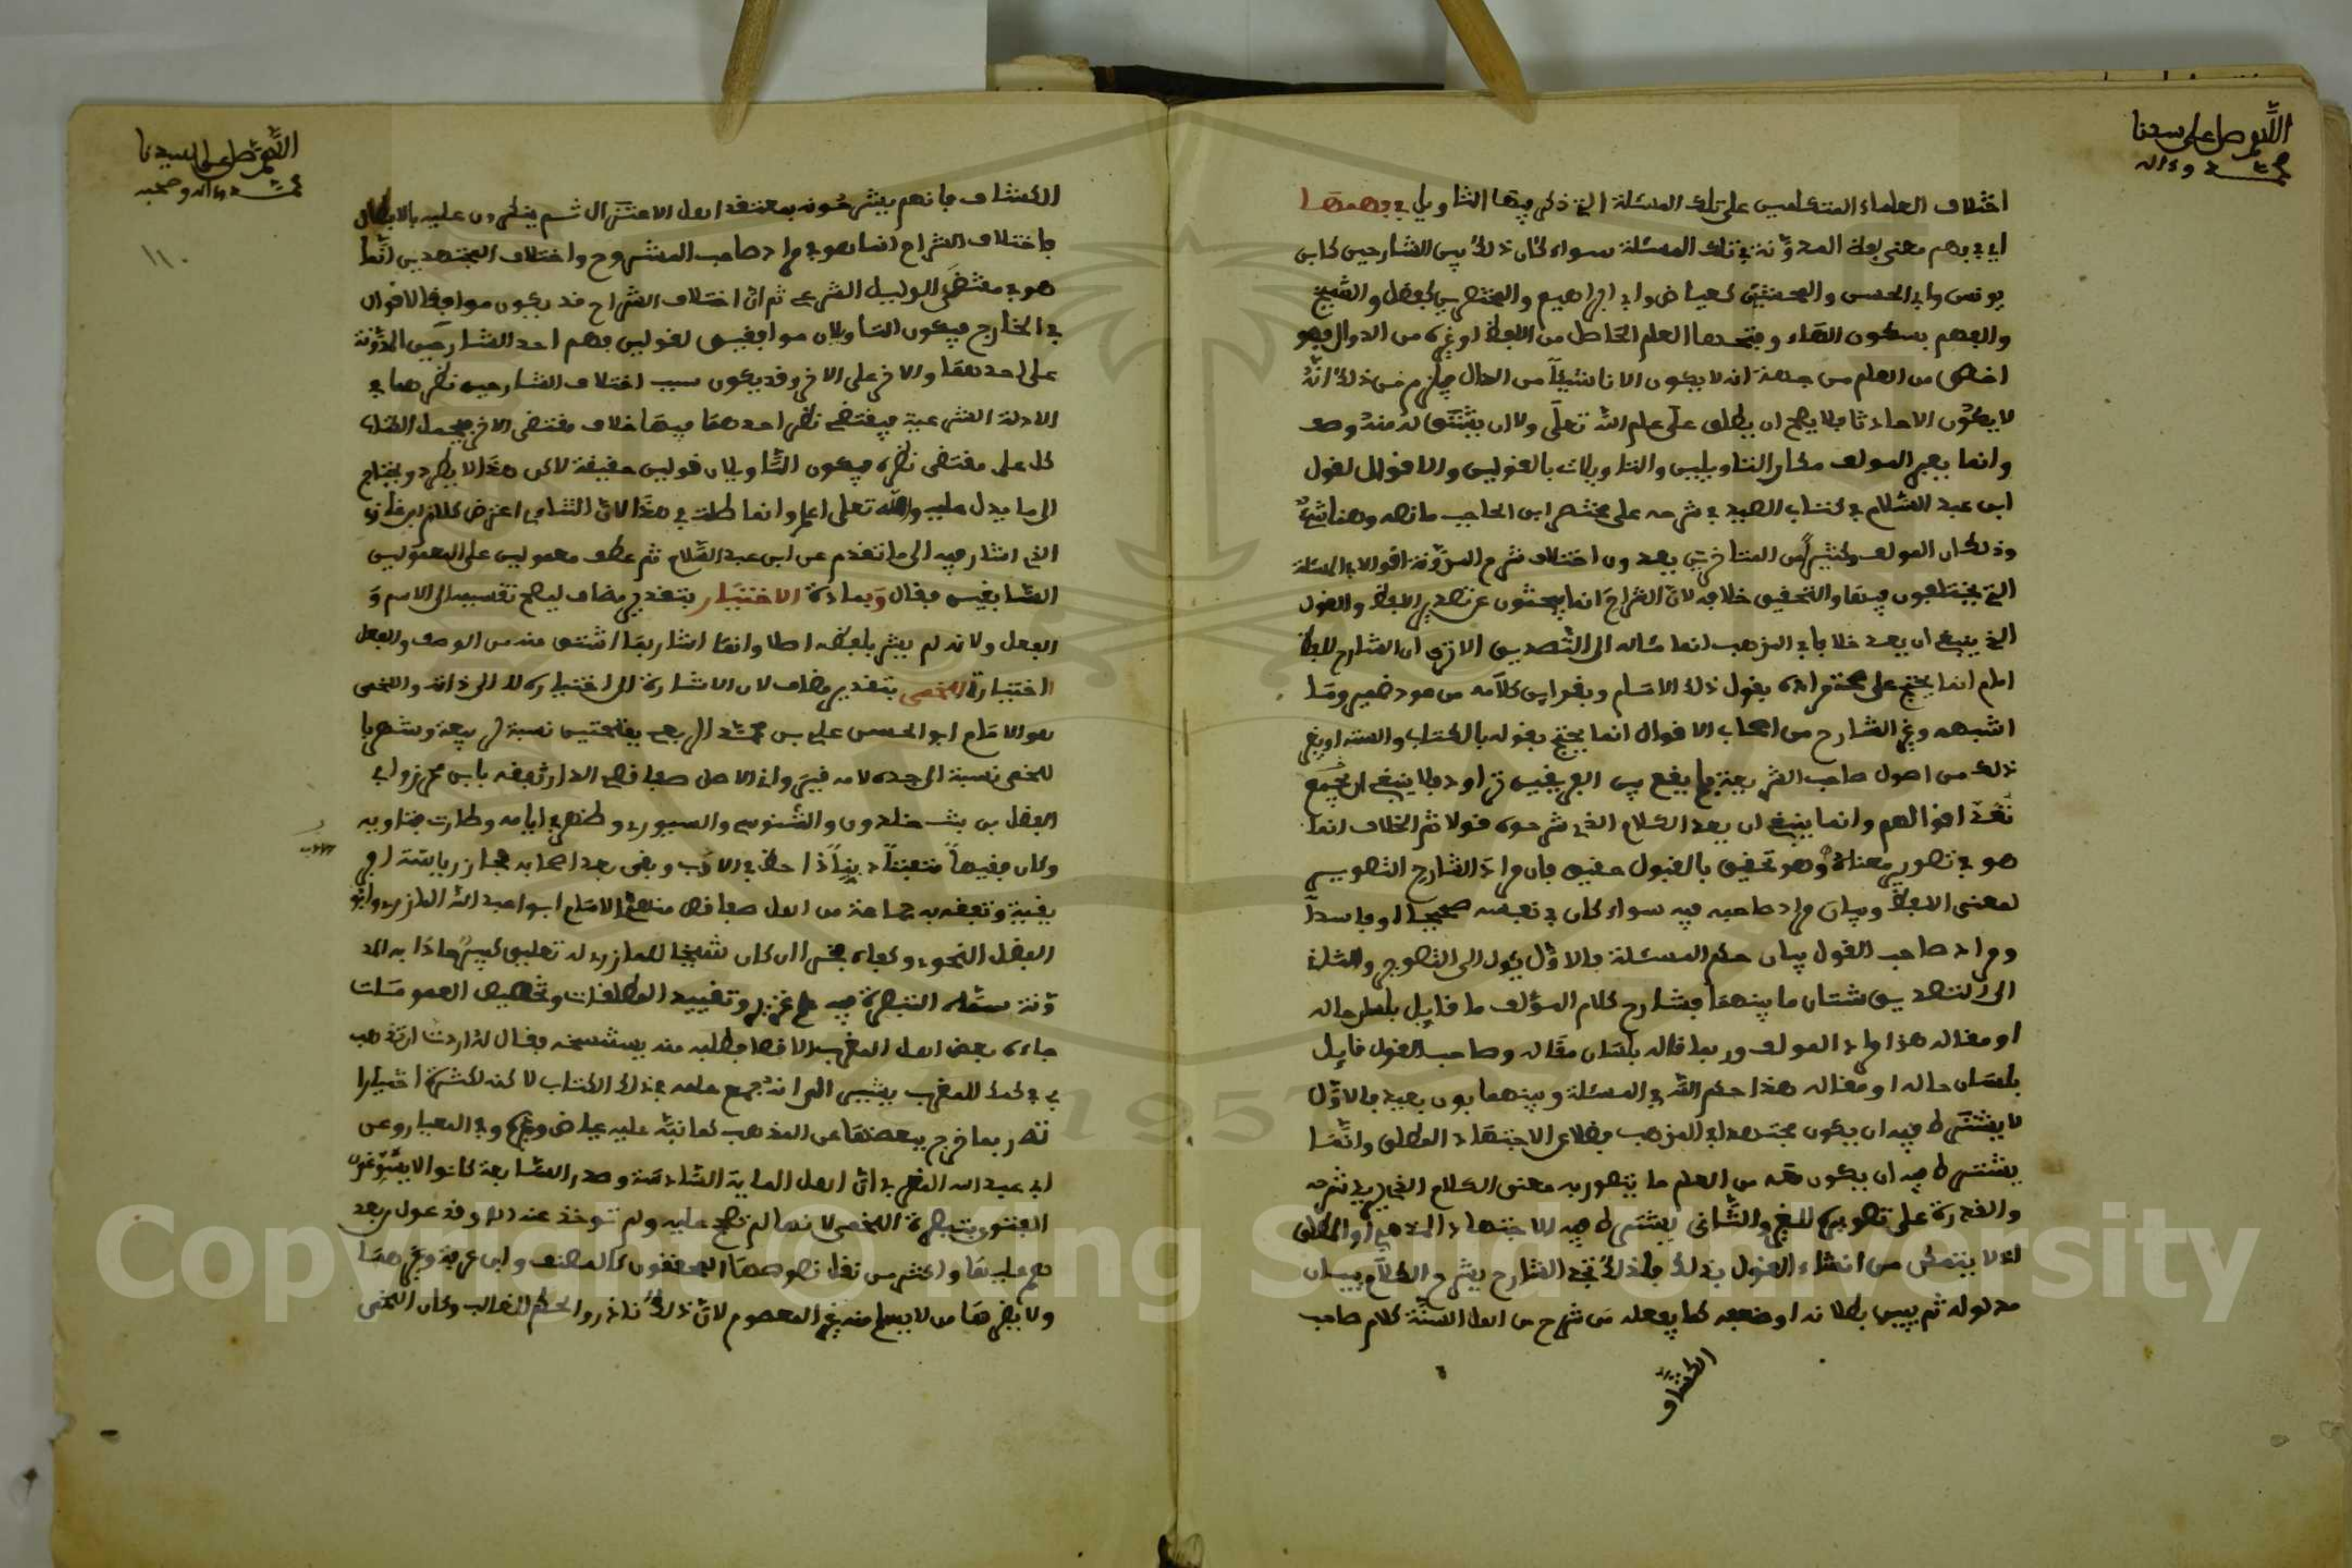 اللهم صل على سيدنا
محمد وءاله
اختلاف العلماء المتكلمين على تلك المسئلة التي ذكر فيها التاويل في فهمها
اي في فهم معنى لفظ المدونة في تلك المسئلة سواء كان ذلك بين الشارحين كابن
يونس وابي الحسن والمحشيين كعياض وابي ابراهيم والمختصرين كفضل والشيخ
والفهم بسكون الهاء وفتحها العلم الحاصل من اللفظ او غيره من الدوال فهو
اخص من العلم من جهة انه لا يكون الا ناشئا من الدال فلزم من ذلك انه
لا يكون الا حادثا فلا يصح ان يطلق على علم الله تعلى ولا ان يشتق له منه وصف
وانما يعبر المولف مكان التاويلين والتاويلات بالقولين والاقوال لقول
ابن عبد السلام في كتاب الصيد في شرحه على مختصر ابن الحاجب ما نصه وهنا شيء
وذلك ان المولف وكثيرا من المتاخرين يعدون اختلاف شرح المدونة اقوالا في المسئلة
التي يختلفون فيها والتحقيق خلافه لان الشراح انما يبحثون عن تصوير اللفظ والقول
الذي ينبغي ان يعد خلافا في المذهب انما مئاله الى التصديق الا ترى ان الشارح للفظ
امام انما يحتج على صحة مراده بقول ذلك الامام وبقراين كلامه من عود ضمير وما
اشبهه وغير الشارح من اصحاب الاقوال انما يحتج بقوله بالكتاب والسنة او بغير
ذلك من اصول صاحب الشريعة فما يقع بين الفريقين تراود فلا ينبغي ان يجمع
نقد اقوالهم وانما ينبغي ان يعد الكلام الذي شرحوه قولا ثم الخلاف انما
هو في تصوير معناه وهو تحقيق بالقبول حقيق فان مراد الشارح التصوير
لمعنى اللفظ وبيان مراد صاحبه فيه سواء كان في نفسه صحيحا او فاسدا
ومراد صاحب القول بيان حكم المسئلة فالاول يئول الى التصور والثاني
الى التصديق شتان ما بينهما فشارح كلام المؤلف ما قايل بلسان حاله
او مقاله هذا مراد المولف وربما قاله بلسان مقاله وصاحب القول قايل
بلسان حاله او مقاله هذا حكم الله في المسئلة وبينهما بون بعيد فالاول
لا يشترط فيه ان يكون مجتهدا في المذهب فضلا عن الاجتهاد المطلق وانما
يشترط فيه ان يكون معه من العلم ما يتصور به معنى الكلام الذي يريد شرحه
والقدرة على تصويره للغير والثاني يشترط فيه الاجتهاد المذهبي او المطلق
اذ لا يتمكن من انشاء القول بذلك فلذلك تجد الشارح يشرح الكلام ببيان
مدلوله ثم يبين بطلانه او ضعفه كما يفعله من شرح من اهل السنة كلام صاحب
الكشاف
اللهم صل على سيدنا
محمد وءاله وصحبه
١١٠
الكشاف فانهم يشرحونه بمعتقد اهل الاعتزال ثم ينكرون عليه بالابطال
فاختلاف الشراح انما هو في مراد صاحب المشروح واختلاف المجتهدين انما
هو في مقتضى الدليل الشرعي ثم ان اختلاف الشراح قد يكون موافقا لاقوال
في الخارج فيكون التاويلان موافقين لقولين فهم احد الشارحين المدونة
على احدهما والاخر على الاخر وقد يكون سبب اختلاف الشارحين نظرهما في
الادلة الشرعية فيقتضي نظر احدهما فيها خلاف مقتضى الاخر فيحمل اللفظ
كل على مقتضى نظره فيكون التاويلان قولين حقيقة لاكن هذا لا يطرد ويحتاج
الى ما يدل عليه والله تعلى اعلم وانما طلت في هذا لان التتاءي اعترض كلام ابن غازي
الذي اشار فيه الى ما تقدم عن ابن عبد السلام ثم عطف معمولين على المعمولين
السابقين فقال وبمادة الاختيار بتقدير مضاف ليصح تقسيمه الى الاسم و
الفعل ولانه لم يشر بلفظه اصلا وانما اشار بما اشتق منه من الوصف والفعل
اختيارة اللخمي بتقدير مضاف لان الاشارة الى اختياره لا الى ذاته واللخمي
هو الامام ابو الحسن علي بن محمد الربعي بفتحتين نسبة لربيعة وشهر با
للخمي نسبة الى جده لامه قيرواني الاصل صفاقصي الدار تفقه بابن محرز وابي
الفضل بن بنت خلدون والتونسي والسيوري وظهر في ايامه وطارت فتاويه
وكان فقيها متفننا دينا ذا حظ في الادب وبقي بعد اصحابه فحاز رياسة افر
يقية وتفقه به جماعة من اهل صفاقص منهم الامام ابو عبد الله المازري وابو
الفضل النحوي وكفاه فخرا ان كان شيخا للمازري له تعليق كبير حاذا به المد
ونة سماه التبصرة فيه علم غزير وتقييد المطلقات وتخصيص العمومات
جاءه بعض اهل المغرب الاقصا فطلبه منه يستنسخه فقال له اردت ان تذهب
بي في كمك للمغرب يشير الى انه جمع علمه في ذلك الكتاب لاكنه لكثرة اختيارا
ته ربما خرج ببعضها عن المذهب كما نبه عليه عياض وغيره وفي المعيار وعن
ابي عبد الله المقري ان اهل الماية السادسة وصدر السابعة كانوا لا يسوغون
الفتوى بتبصرة اللخمي لانها لم تصح عليه ولم توخذ عنه وقد عول بعد
هم عليها واكثر من نقل نصوصها المحققون كالمصنف وابن عرفة وغيرهما
ولا يضرها من لا يسلم منه غير المعصوم لان ذلك نادر والحكم للغالب وكان اللخمي